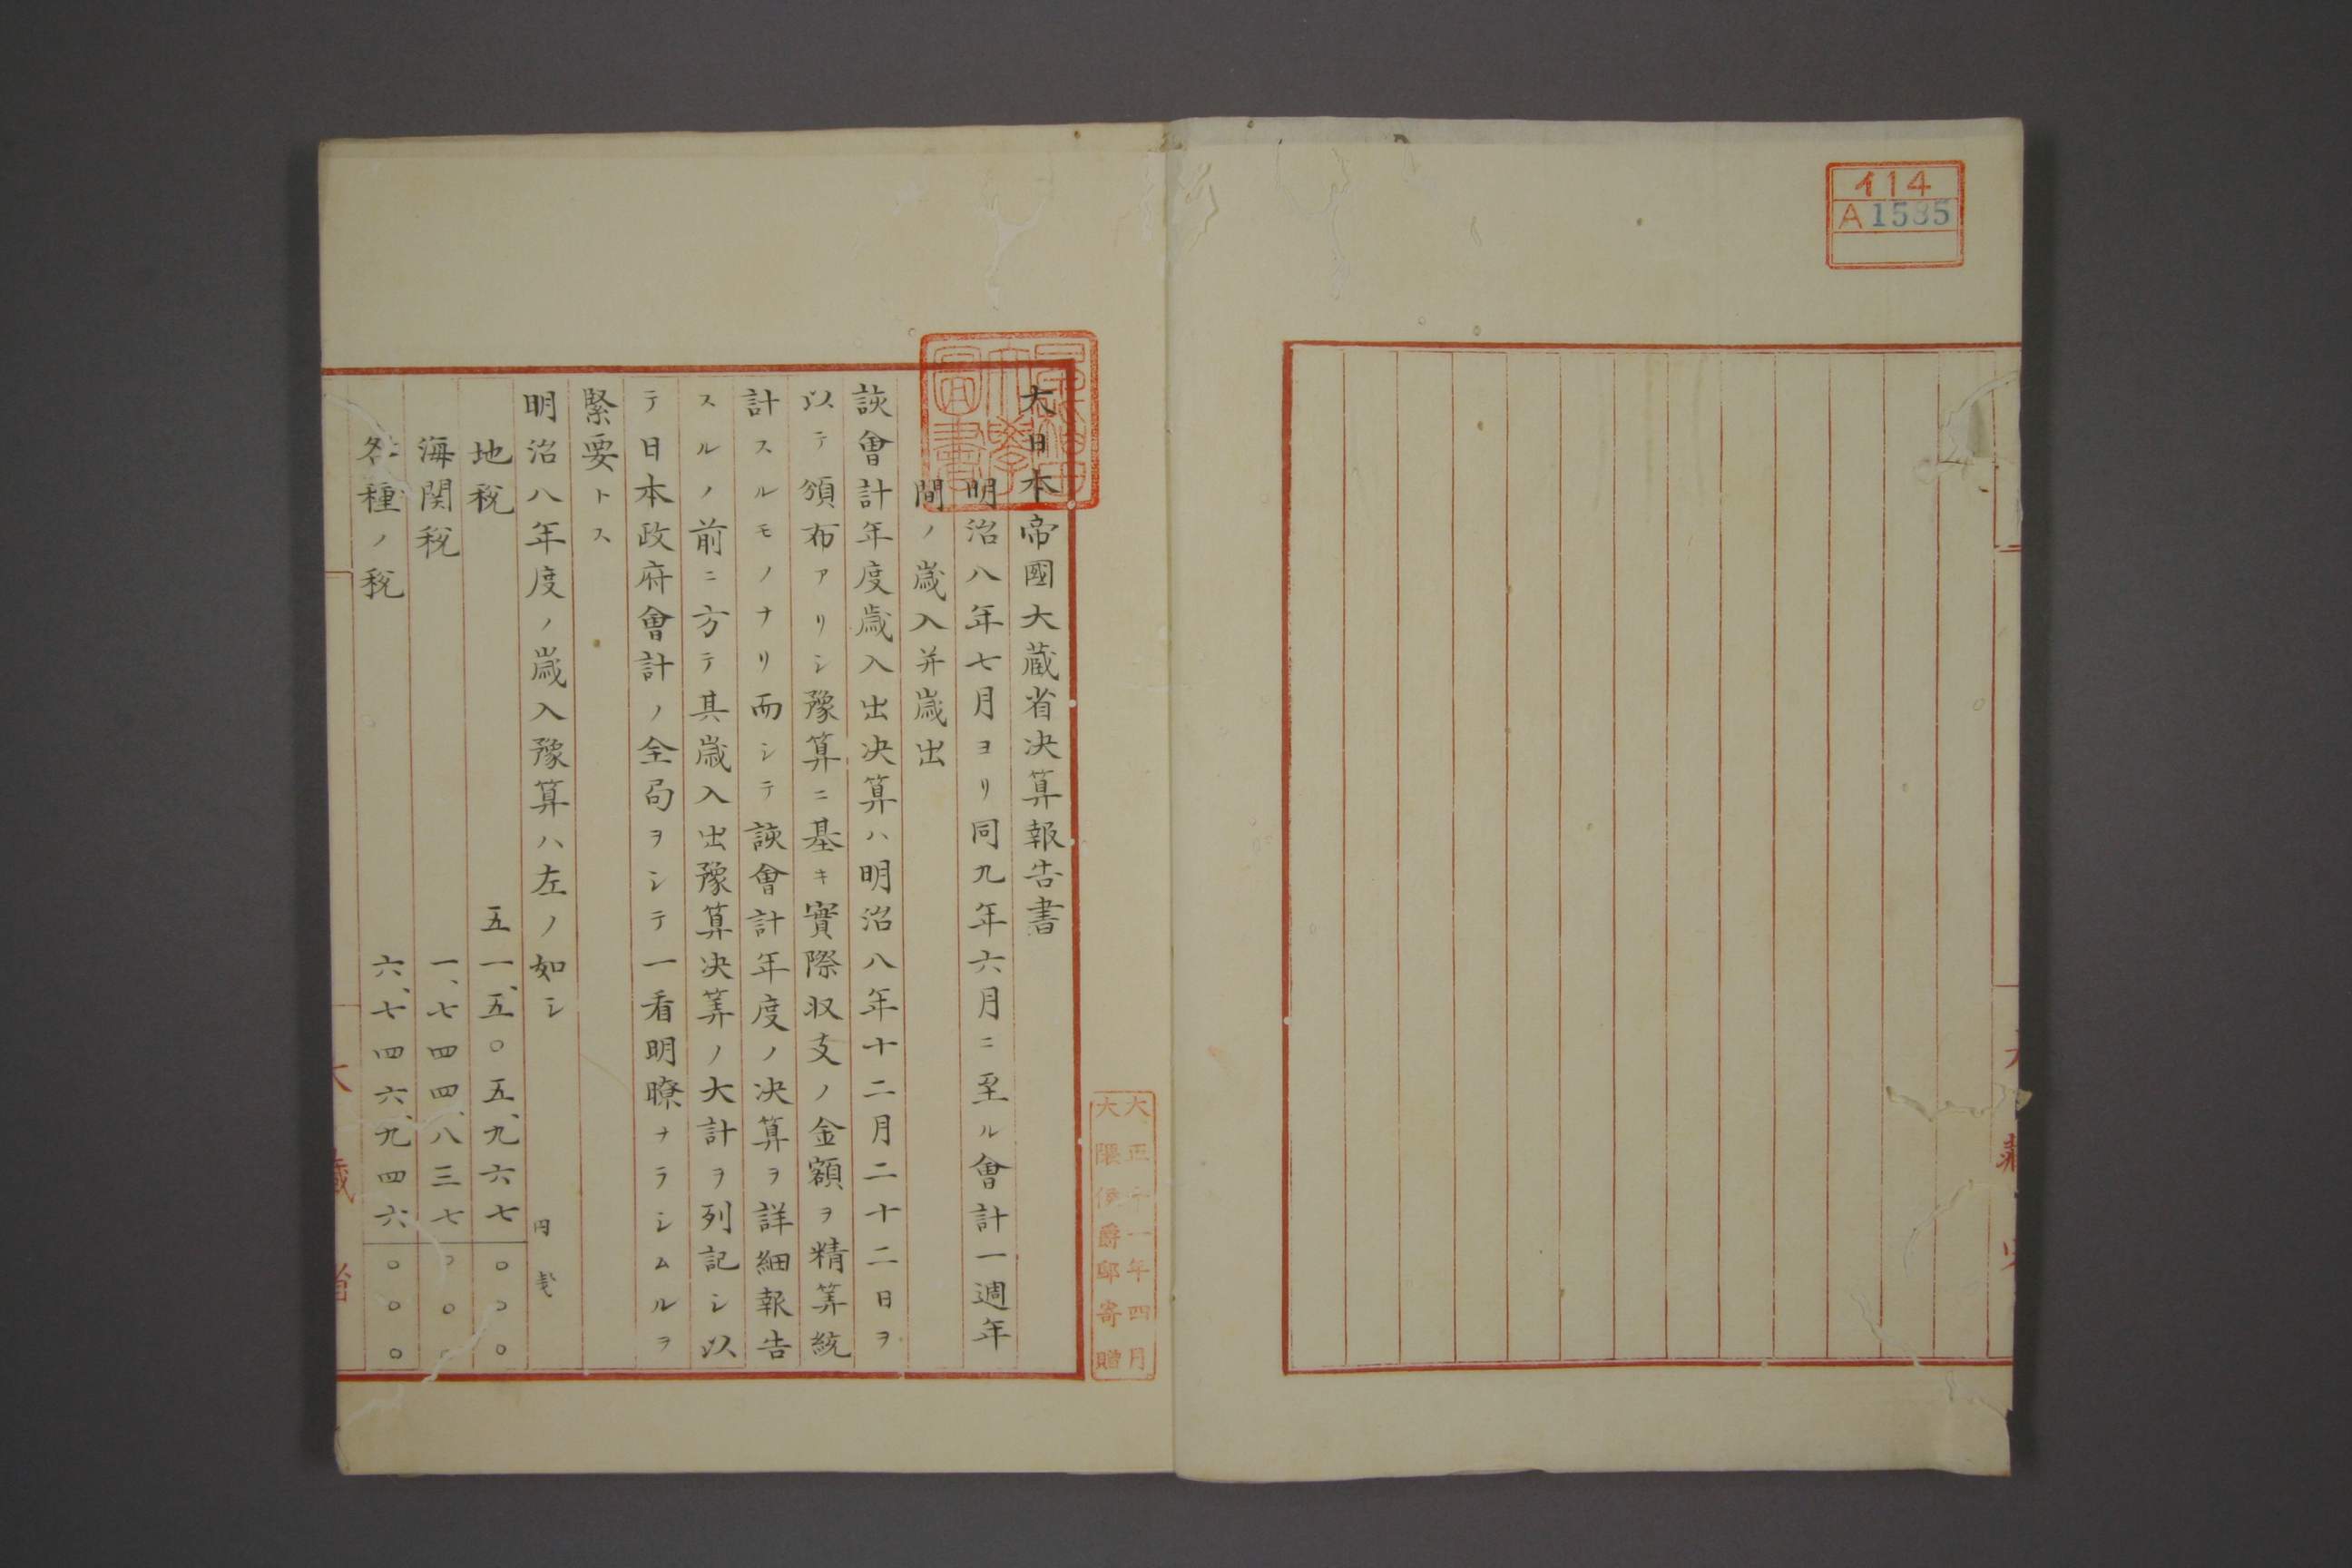 イ14
A1585
大日本帝國大蔵省决算報告書
明治八年七月ヨリ同九年六月ニ至ル會計一週年
間ノ歳入并歳出
該會計年度歳入出决算ハ明治八年十二月二十二日ヲ
以テ頒布アリシ豫算ニ基キ實際収支ノ金額ヲ精筭統
計スルモノナリ而シテ該會計年度ノ决算ヲ詳細報告
スルノ前ニ方テ其歳入出豫算决筭ノ大計ヲ列記シ以
テ日本政府會計ノ全局ヲシテ一看明瞭ナラシムルヲ
緊要トス
明治八年度ノ歳入豫算ハ左ノ如シ
円
地税 五一、五〇五、九六七 〇〇〇
海関税 一、七四四、八三七 〇〇〇
各種ノ税 六、七四六、九四六 〇〇〇
大正十一年四月
大隈侯爵邸寄贈
大蔵省